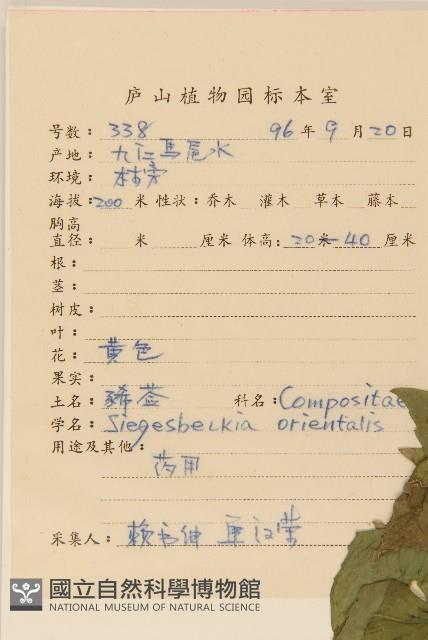 庐山植物园标本室
号数: 338 96年9月20日
产地: 九江馬尾水
环境: 林旁
海拔: 200 米 性状: 乔木 灌木 草本 藤本
胸高
直径: 米 厘米 体高: 20米 40 厘米
根:
茎:
树皮:
叶:
花: 黄色
果实:
土名: 豨莶 科名: Compositae
学名: Siegesbeckia orientalis
用途及其他:
药用
采集人: 赖书绅
國立自然科學博物館
NATIONAL MUSEUM OF NATURAL SCIENCE